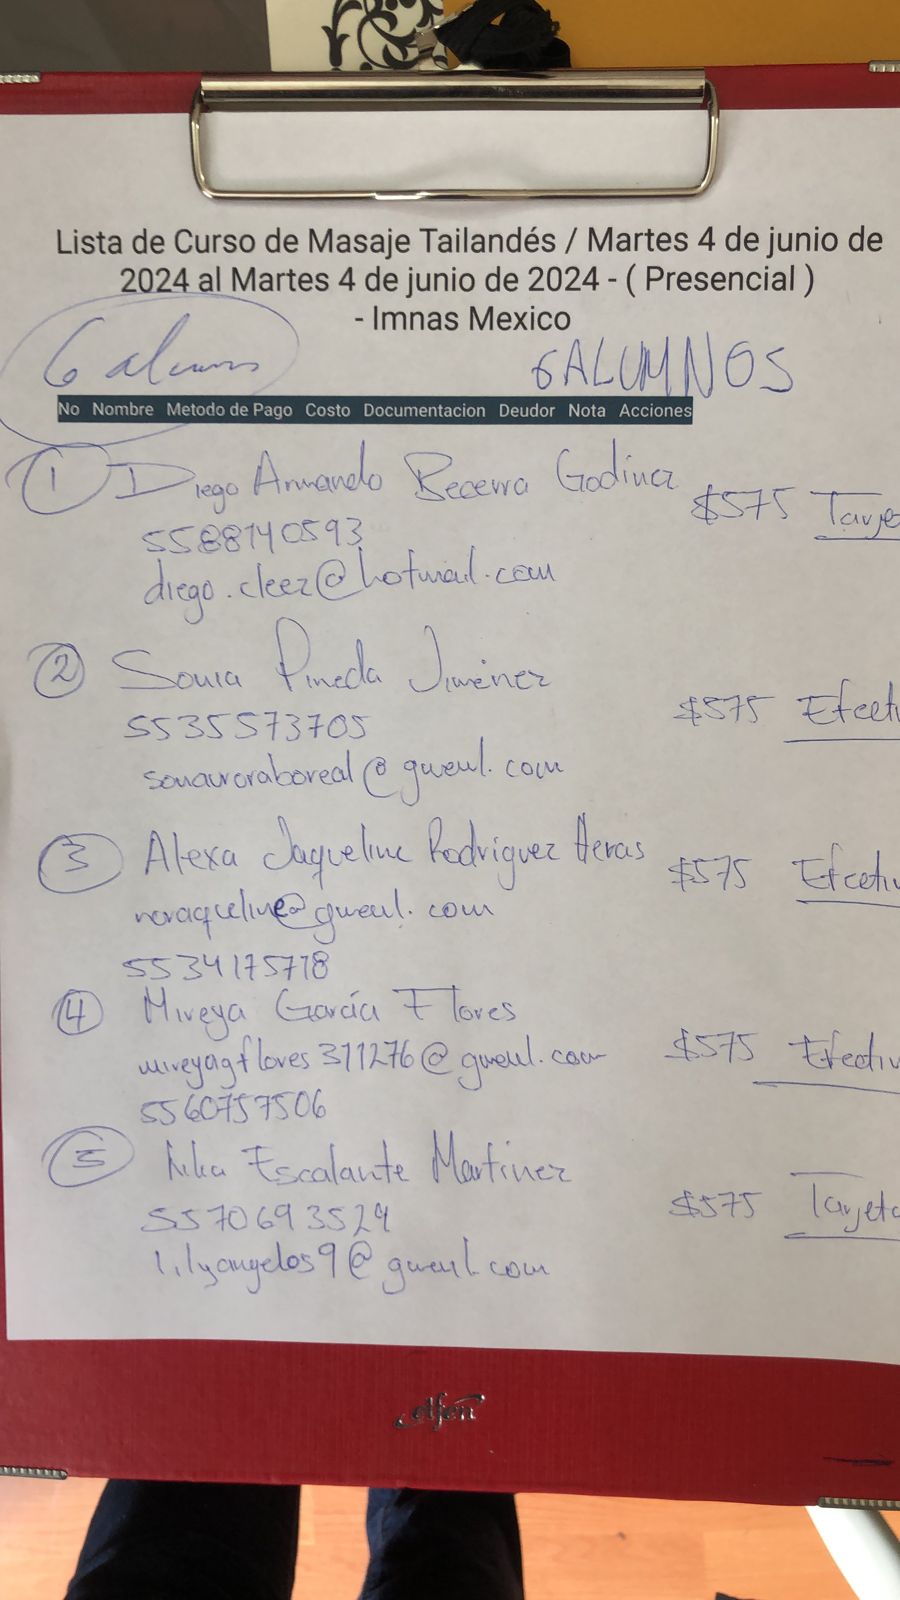 Lista de Curso de Masaje Tailandés / Martes 4 de junio de
2024 al Martes 4 de junio de 2024 - ( Presencial )
- Imnas Mexico
6 alumnos
6 ALUMNOS
No Nombre Metodo de Pago Costo Documentacion Deudor Nota Acciones
1 Diego Armando Becerra Godinez $575 Tarje
5588140593
diego.cleez@hotmail.com
2 Sonia Pineda Jiménez $575 Efecti
5535573705
sonauroraboreal@gmail.com
3 Alexa Jaqueline Rodriguez Heras $575 Efectiv
noraqueline@gmail.com
5534175718
4 Mireya García Flores $575 Efectiv
mireyagflores311276@gmail.com
5560757506
5 Escalante Martinez $575 Tarjeta
5570693529
lilyangelos9@gmail.com
elfen